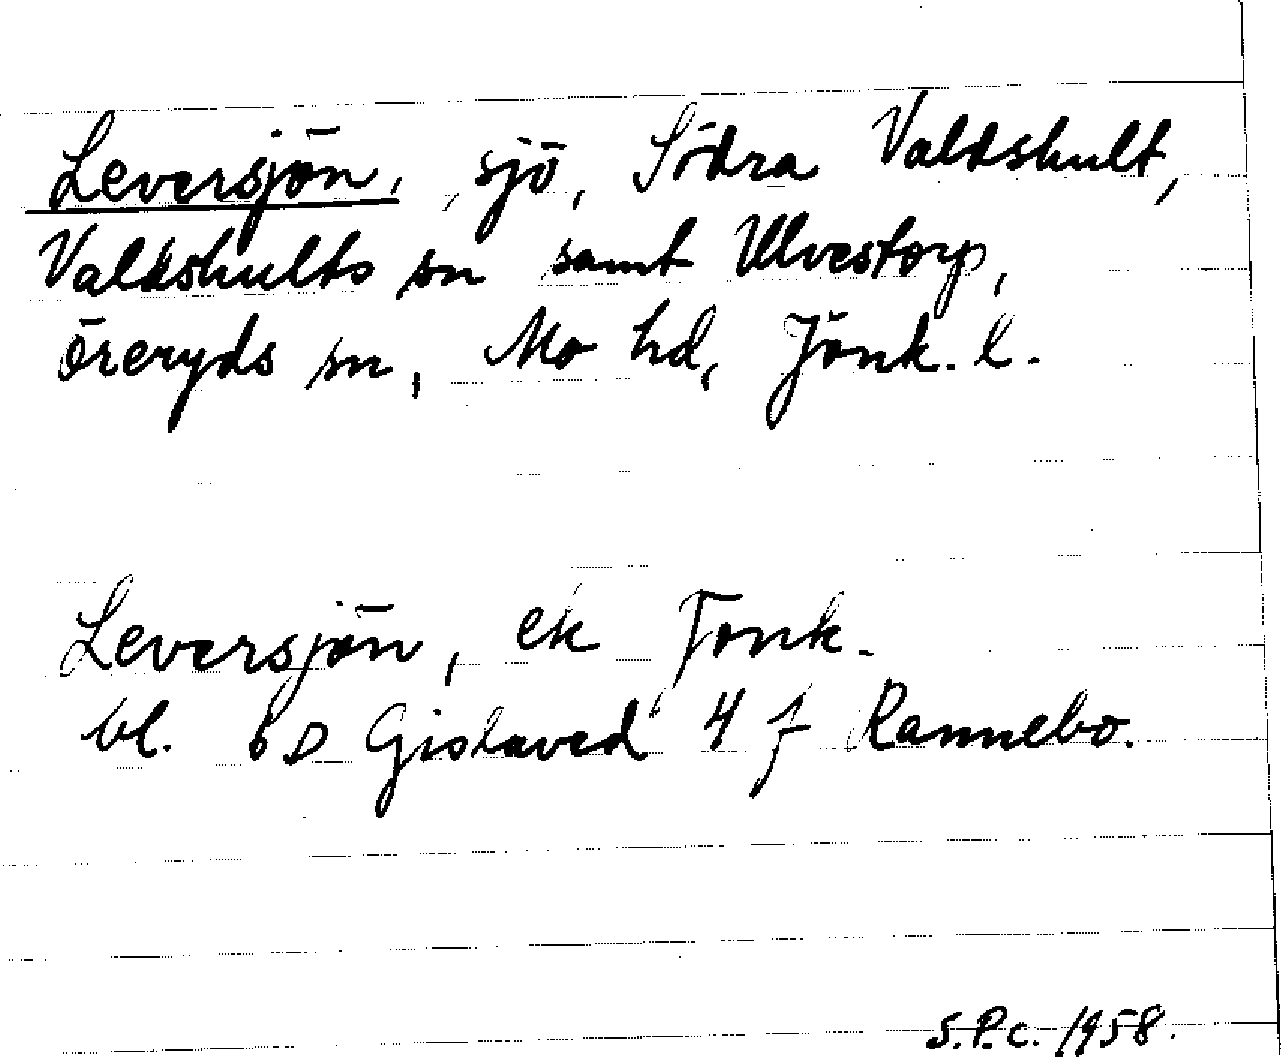 Leversjön, sjö, Södra Valdshult,
Valdshults sn samt Ulvestorp,
Öreryds sn, Mo hd, Jönk. l.
Leversjön, ek Jönk.
bl. 6D Gislaved 4 f Rannebo.
S.P.C. 1958.